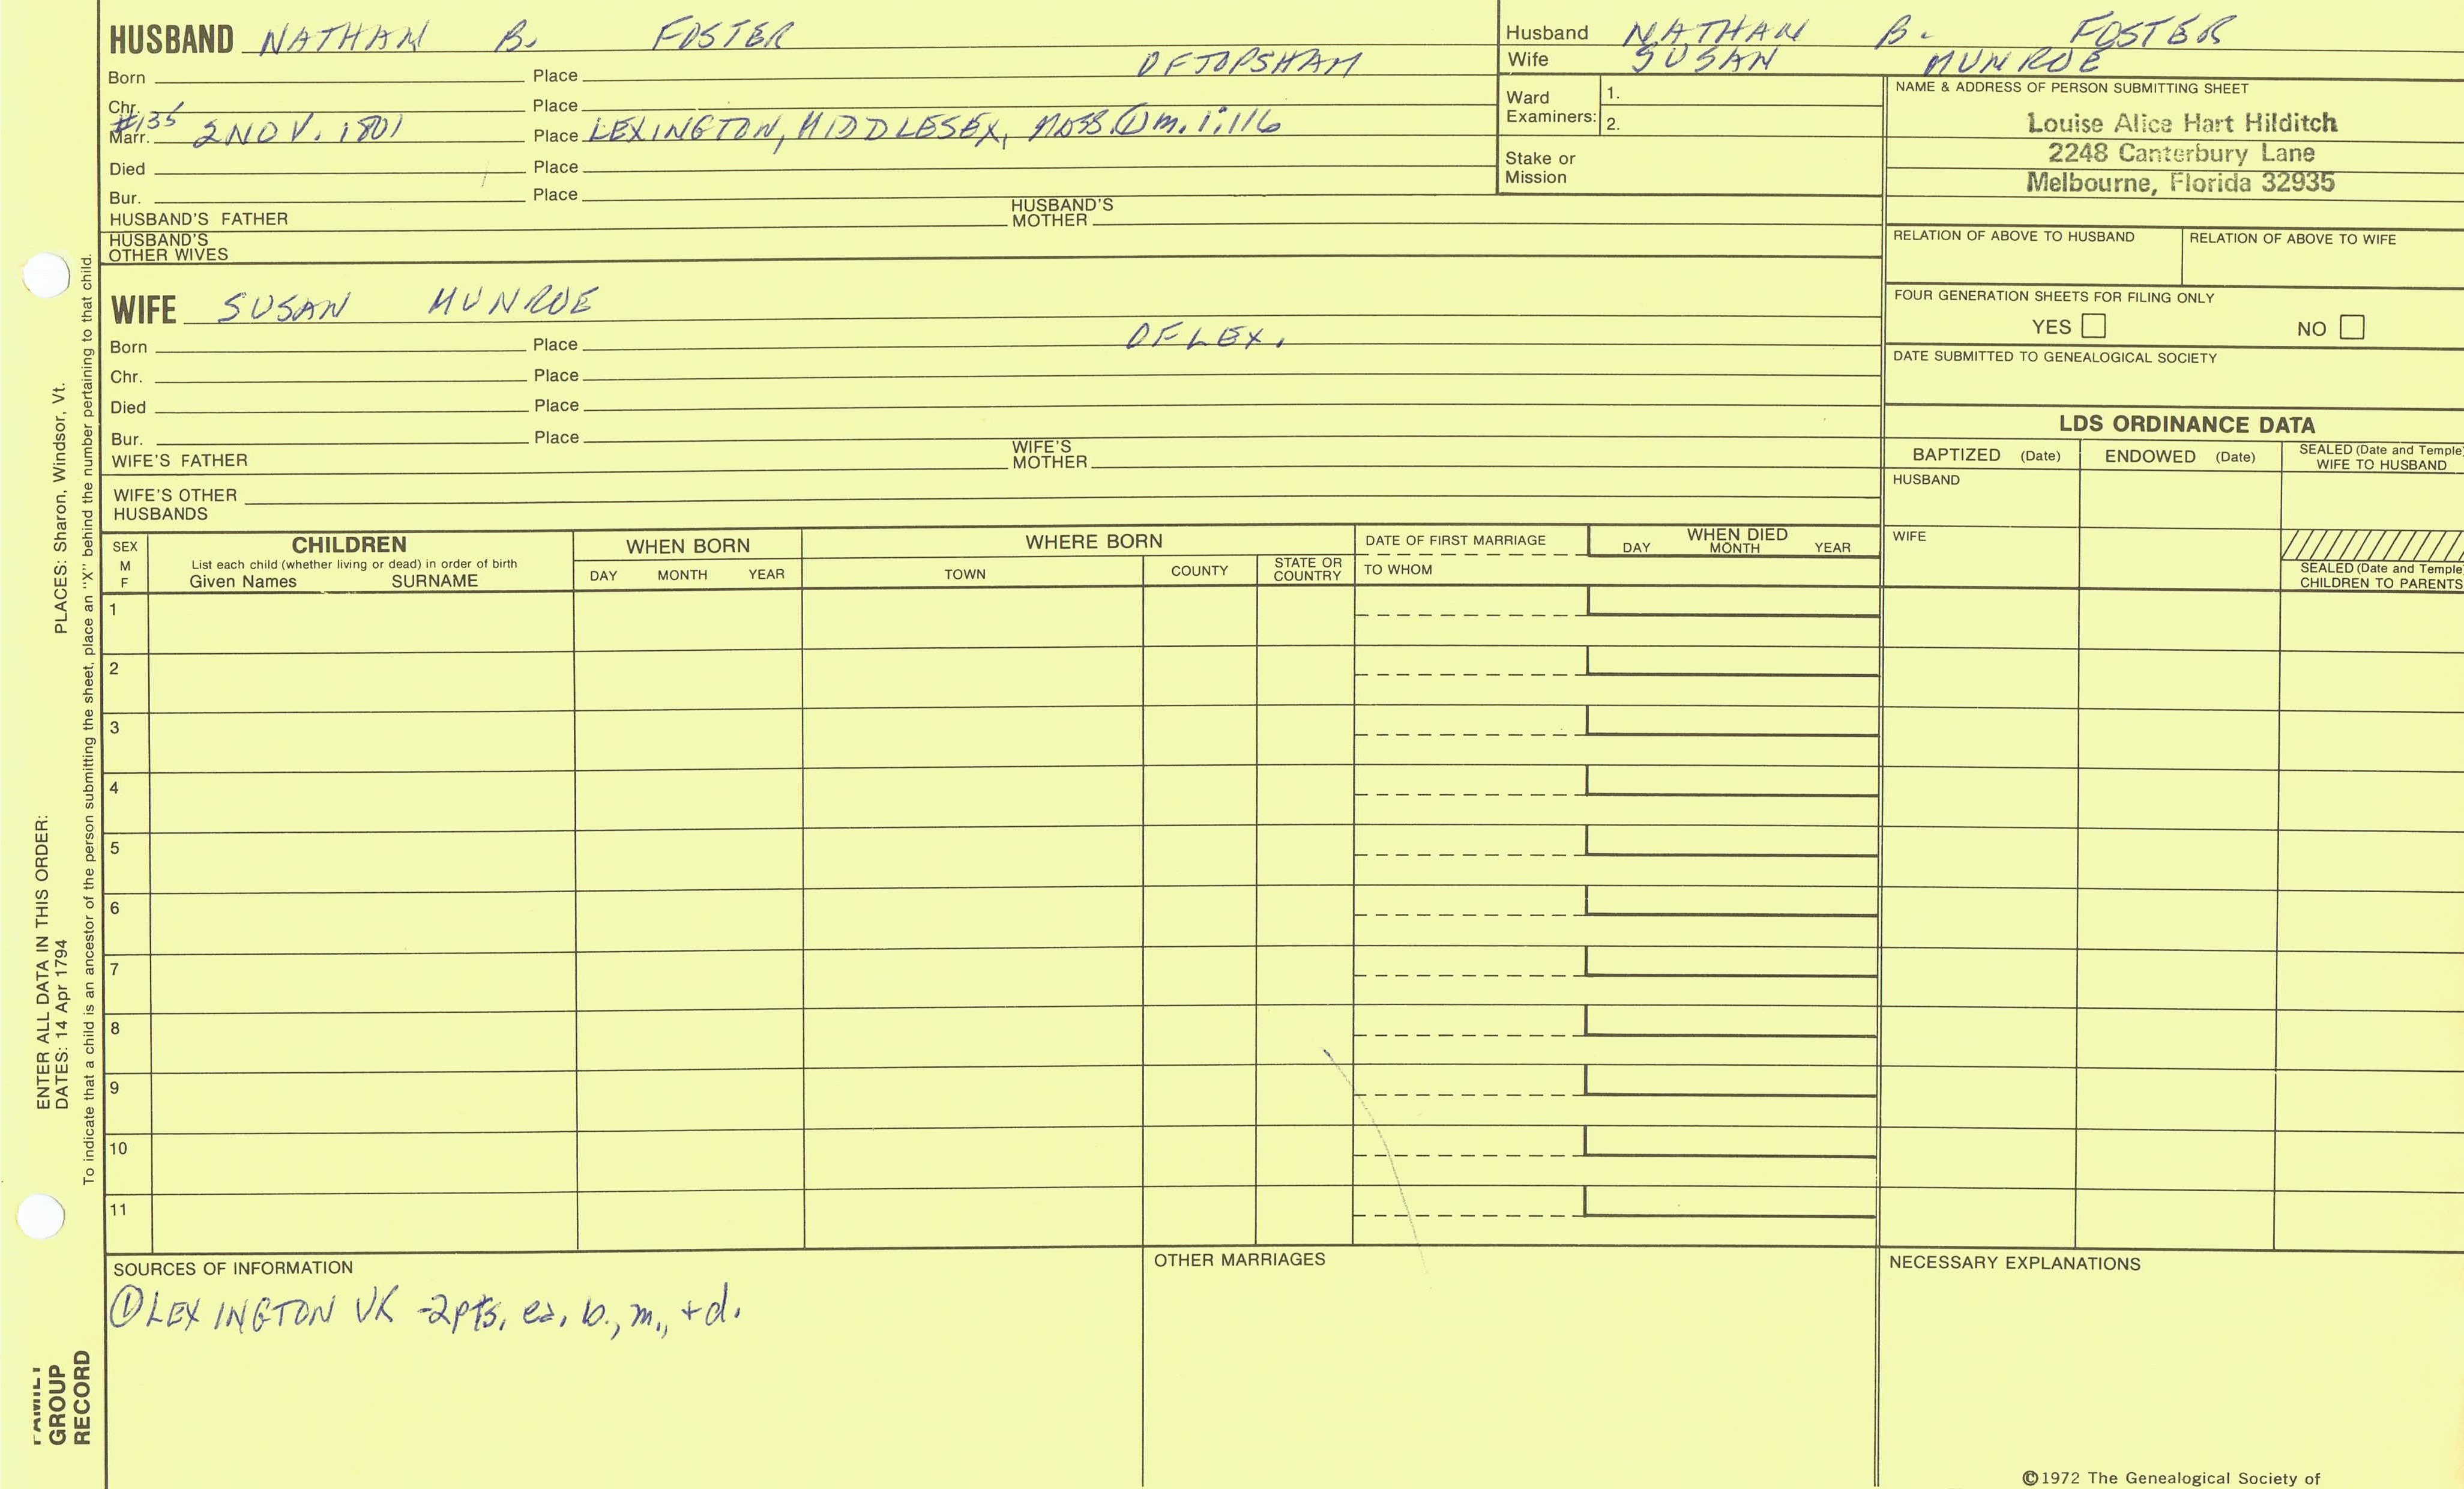 HUSBAND NATHAN B. FOSTER
Born Place OF TOPSHAM
Chr. Place
#135
Marr. 2 NOV. 1801 Place LEXINGTON, MIDDLESEX, MASS. ① m. 1:116
Died Place
Bur. Place
HUSBAND'S FATHER HUSBAND'S MOTHER
HUSBAND'S OTHER WIVES
Husband NATHAN B. FOSTER
Wife SUSAN MUNROE
Ward Examiners: 1.
2.
Stake or Mission
NAME & ADDRESS OF PERSON SUBMITTING SHEET
Louise Alice Hart Hilditch
2248 Canterbury Lane
Melbourne, Florida 32935
RELATION OF ABOVE TO HUSBAND RELATION OF ABOVE TO WIFE
FOUR GENERATION SHEETS FOR FILING ONLY
YES NO
DATE SUBMITTED TO GENEALOGICAL SOCIETY
WIFE SUSAN MUNROE
Born Place OF LEX.
Chr. Place
Died Place
Bur. Place
WIFE'S FATHER WIFE'S MOTHER
WIFE'S OTHER HUSBANDS
LDS ORDINANCE DATA
BAPTIZED (Date) ENDOWED (Date) SEALED (Date and Temple) WIFE TO HUSBAND
HUSBAND
WIFE
SEALED (Date and Temple) CHILDREN TO PARENTS
SEX M F
CHILDREN
List each child (whether living or dead) in order of birth
Given Names SURNAME
WHEN BORN
DAY MONTH YEAR
WHERE BORN
TOWN COUNTY STATE OR COUNTRY
DATE OF FIRST MARRIAGE
TO WHOM
WHEN DIED
DAY MONTH YEAR
1
2
3
4
5
6
7
8
9
10
11
SOURCES OF INFORMATION
① LEXINGTON VR - 2 pts, ea, b., m., + d.
OTHER MARRIAGES
NECESSARY EXPLANATIONS
©1972 The Genealogical Society of
PLACES: Sharon, Windsor, Vt.
ENTER ALL DATA IN THIS ORDER:
DATES: 14 Apr 1794
To indicate that a child is an ancestor of the person submitting the sheet, place an "X" behind the number pertaining to that child.
FAMILY
GROUP
RECORD